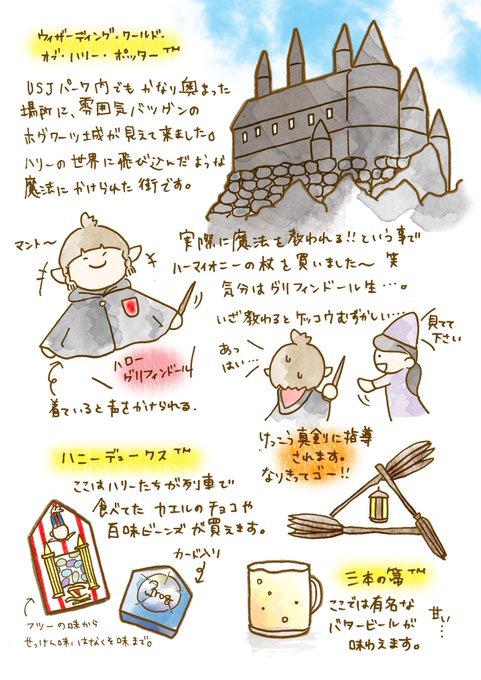 ウィザーディング・ワールド・
オブ・ハリー・ポッター™
USJパーク内でもかなり奥まった
場所に、雰囲気バツグンの
ホグワーツ城が見えて来ました。
ハリーの世界に飛び込んだような
魔法にかけられた街です。
マント〜
実際に魔法を教われる!!という事で
ハーマイオニーの杖を買いました〜 笑
気分はグリフィンドール生…。
いざ教わるとケッコウむずかしい…
ハロー
グリフィンドール!
着ていると声をかけられる.
あっ
はい…
見てて
下さい
けっこう真剣に指導
されます。
なりきってゴー!!
ハニーデュークス™
ここはハリーたちが列車で
食べてた カエルのチョコや
百味ビーンズが買えます。
カード入り
Frog
フツーの味から
せっけん味、はなくそ味まで。
三本の箒™
ここでは有名な
バタービールが
味わえます。
甘い…